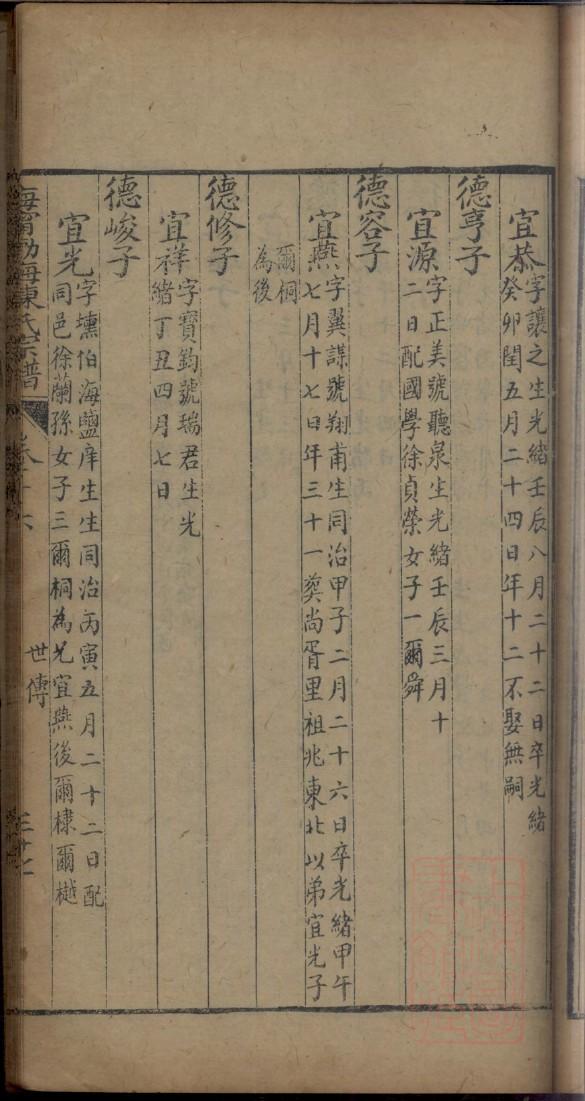 宜恭字讓之生光緒壬辰八月二十二日卒光緒
癸卯閏五月二十四日年十二不娶無嗣
德亨子
宜源字正美號聽泉生光緒壬辰三月十
二日配國學徐貞榮女子一爾舜
德容子
宜燕字翼謀號翔甫生同治甲子二月二十六日卒光緒甲午
七月十七日年三十一葬尚胥里祖兆東北以弟宜光子
爾桐
為後
德修子
宜祥字寶鈞號瑞君生光
緒丁丑四月七日
德峻子
宜光字壎伯海鹽庠生生同治丙寅五月二十二日配
同邑徐蘭孫女子三爾桐為兄宜燕後爾棣爾樾
海寧渤海陳氏宗譜
卷十六
世傳
三十七